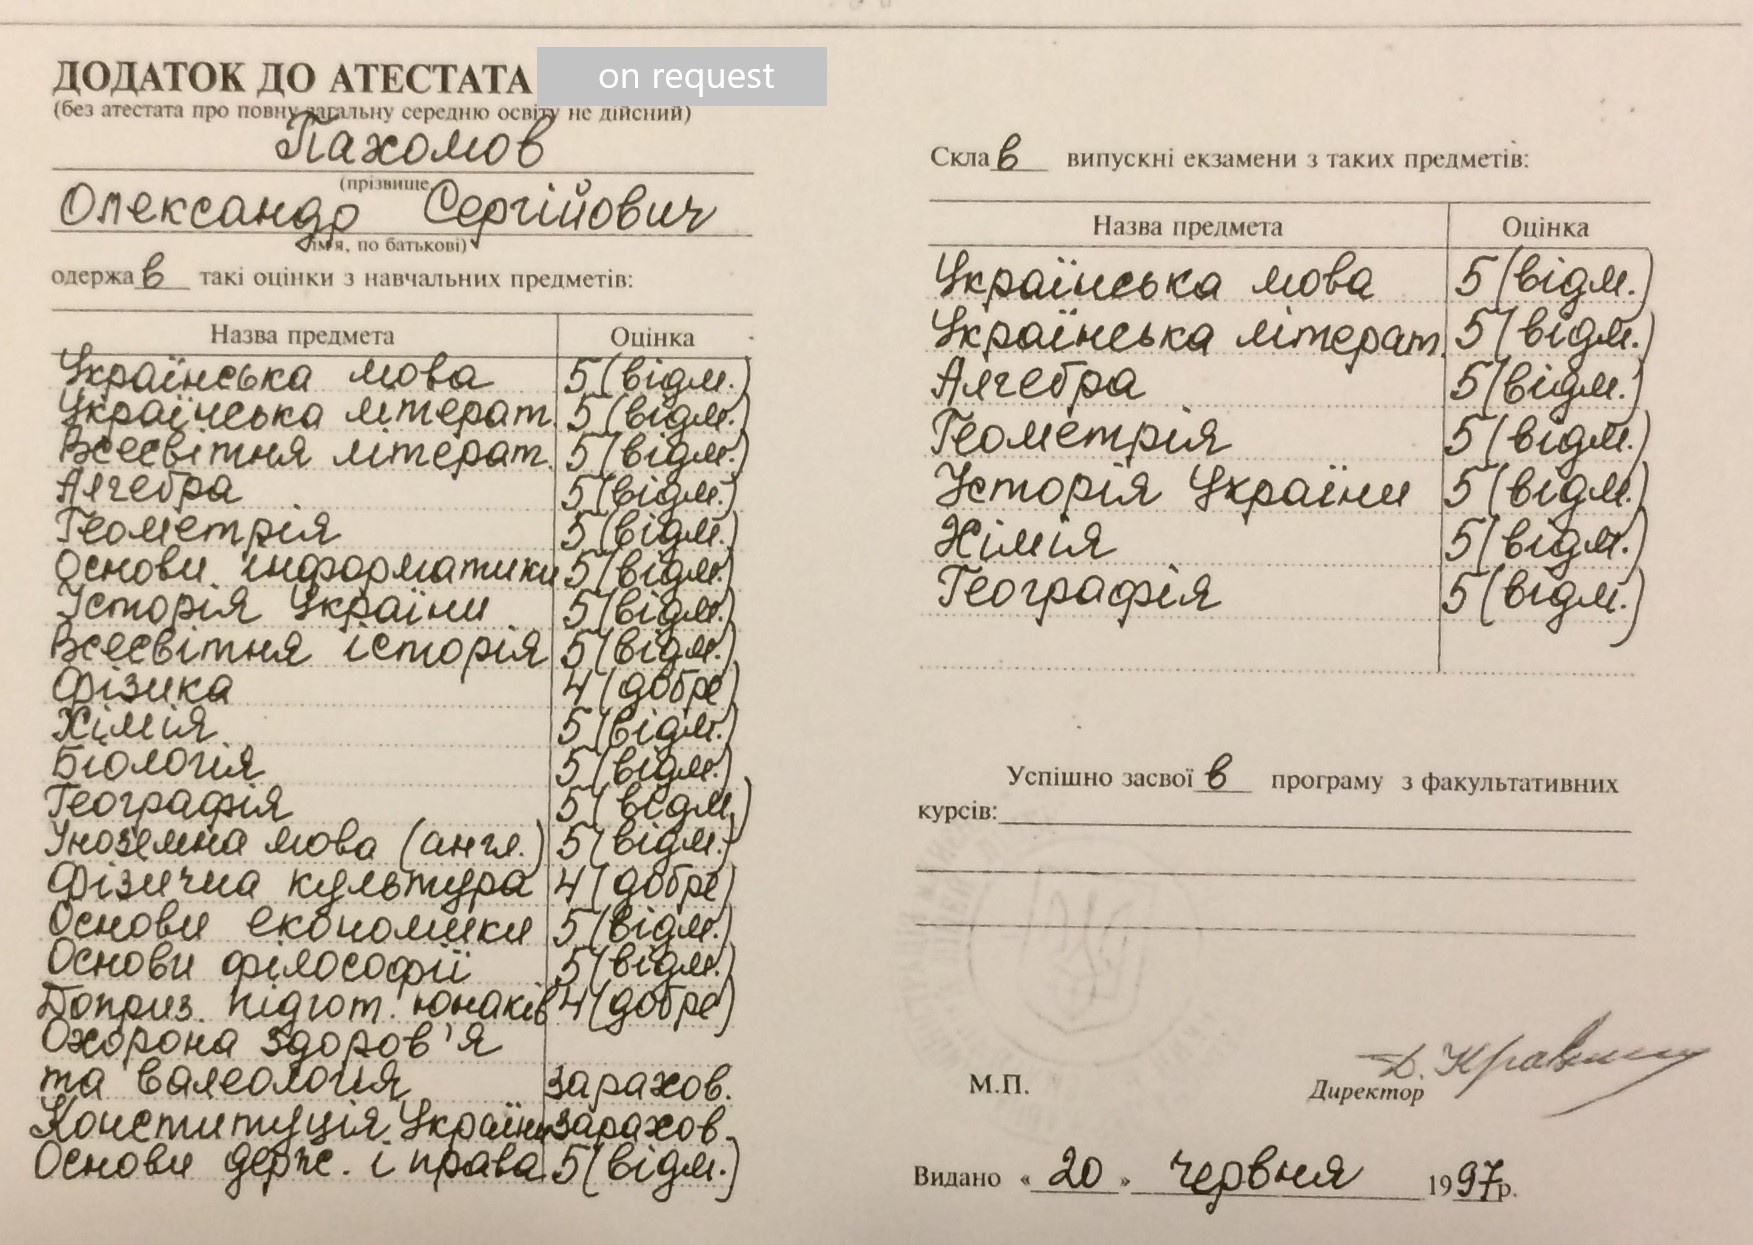 ДОДАТОК ДО АТЕСТАТА on request
(без атестата про повну загальну середню освіту не дійсний)
Пахомов
(прізвище,
Олександр Сергійович
ім'я, по батькові)
одержав такі оцінки з навчальних предметів:
Назва предмета Оцінка
Українська мова 5 (відм.)
Українська літерат. 5 (відм.)
Всесвітня літерат. 5 (відм.)
Алгебра 5 (відм.)
Геометрія 5 (відм.)
Основи інформатики 5 (відм.)
Історія України 5 (відм.)
Всесвітня історія 5 (відм.)
Фізика 4 (добре)
Хімія 5 (відм.)
Біологія 5 (відм.)
Географія 5 (відм.)
Іноземна мова (англ.) 5 (відм.)
Фізична культура 4 (добре)
Основи економіки 5 (відм.)
Основи філософії 5 (відм.)
Доприз. підгот. юнаків 4 (добре)
Охорона здоров'я
та валеологія зарахов.
Конституція України зарахов.
Основи держ. і права 5 (відм.)
Склав випускні екзамени з таких предметів:
Назва предмета Оцінка
Українська мова 5 (відм.)
Українська літерат. 5 (відм.)
Алгебра 5 (відм.)
Геометрія 5 (відм.)
Історія України 5 (відм.)
Хімія 5 (відм.)
Географія 5 (відм.)
Успішно засвоїв програму з факультативних
курсів:
М.П. Директор
Видано «20» червня 1997р.